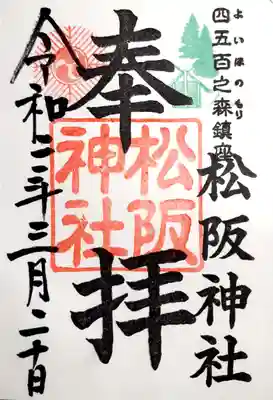 四五百之森鎮座
よいほのもり
松阪神社
奉拝
松阪
神社
令和二年三月二十日